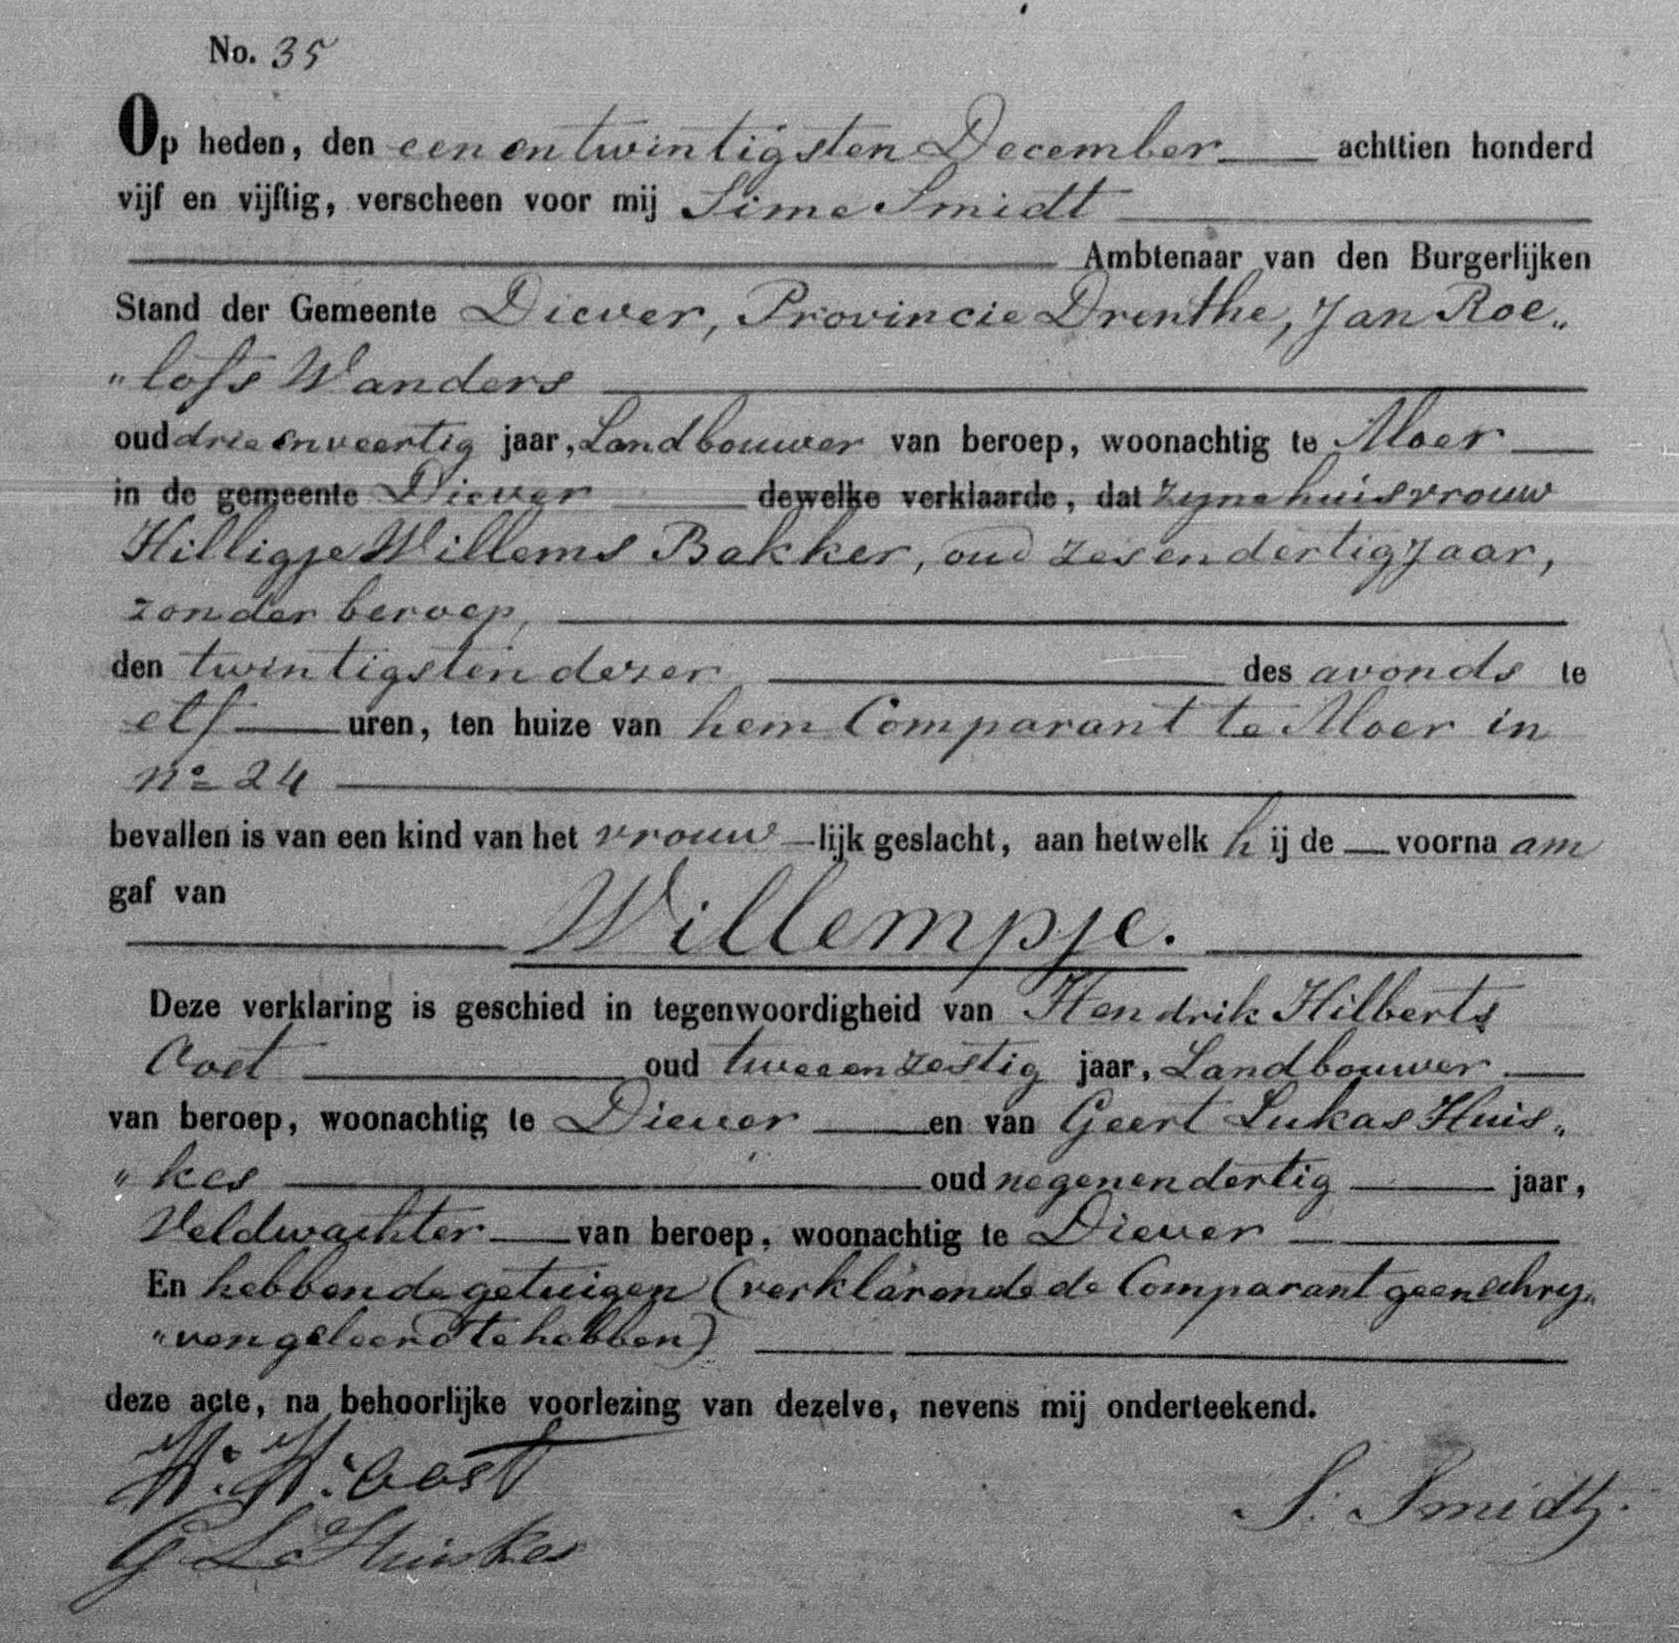 No. 35
Op heden, den een en twintigsten December achttien honderd
vijf en vijftig, verscheen voor mij Sime Smidt
Ambtenaar van den Burgerlijken
Stand der Gemeente Diever, Provincie Drenthe, Jan Roe„
„lofs Wanders
oud drie en veertig jaar, Landbouwer van beroep, woonachtig te Aloer
in de gemeente Diever dewelke verklaarde, dat zyne huisvrouw
Hilligje Willems Bakker, oud zes en dertig jaar,
zonder beroep,
den twintigsten dezer des avonds te
elf uren, ten huize van hem Comparant te Aloer in
no 24
bevallen is van een kind van het vrouw-lijk geslacht, aan hetwelk hij de voornaam
gaf van
Willempje.
Deze verklaring is geschied in tegenwoordigheid van Hendrik Hilberts
oud twee en zestig jaar, Landbouwer
van beroep, woonachtig te Diever en van Geert Lukas Huis„
„kes oud negen en dertig jaar,
Veldwachter van beroep, woonachtig te Diever
En hebben de getuigen (verklarende de Comparant geen schry„
„ven geleerd te hebben)
deze acte, na behoorlijke voorlezing van dezelve, nevens mij onderteekend.
H. H. oost
G L Huiskes
S. Smidt.